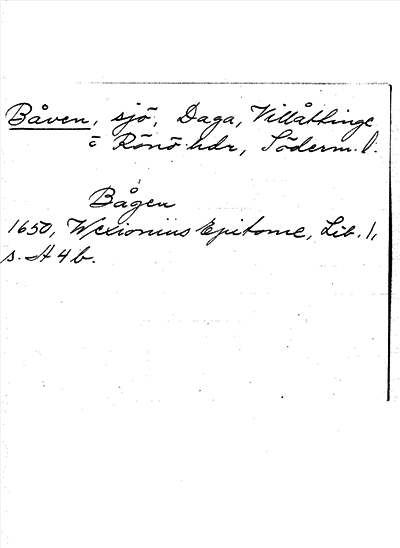 Båven, sjö, Daga, Villåttinge
o Rönö hdr, Söderm. l.
Bågen
1650, Wexionius Epitome, Lib. 1,
s. A 4 b.